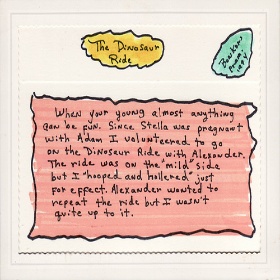 The Dinosaur
Ride
When your young almost anything
can be fun. Since Stella was pregnant
with Adam I volunteered to go
on the Dinosaur Ride with Alexander.
The ride was on the "mild" side
but I "hooped and hollered" just
for effect. Alexander wanted to
repeat the ride but I wasn't
quite up to it.